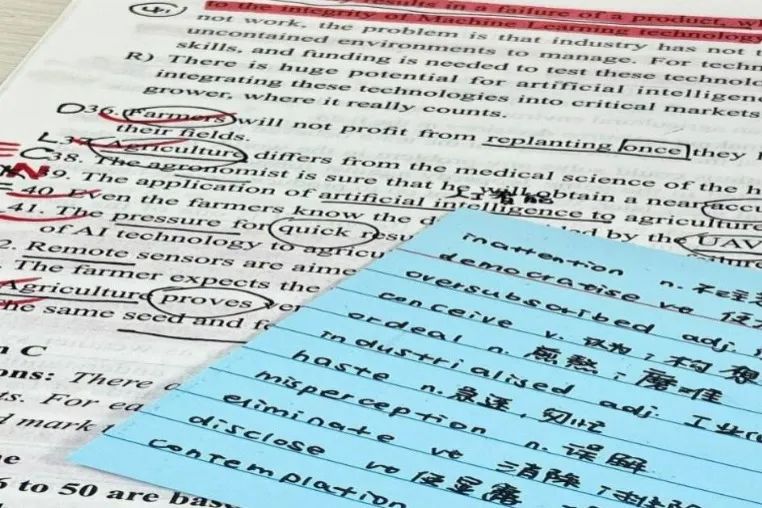 results in a failure of a product, w
to the integrity of Machine Learning technology
not work, the problem is that industry has not
uncontained environments to manage. For techn
skills, and funding is needed to test these technolo
R) There is huge potential for artificial intelligenc
integrating these technologies into critical markets
grower, where it really counts.
36. Farmers will not profit from replanting once they
their fields.
Agriculture differs from the medical science of the h
38. The agronomist is sure that he will obtain a near accu
39. The application of artificial intelligence to agriculture
人工智能
40. Even the farmers know the d led by the UAV
41. The pressure for quick res
of AI technology to agricu
2. Remote sensors are aime
The farmer expects the
Agriculture proves
he same seed and fe
n C
ons: There
ts. For ea
d mark
6 to 50 are bas
inattention n. 不注
democratise vt
oversubscribed adj.
conceive v. 认为；构想
ordeal n. 煎熬；磨难
industrialised adj. 工业
haste n. 急速，匆忙
misperception n. 误解
eliminate vt 消除
disclose vt 使显露
contemplation